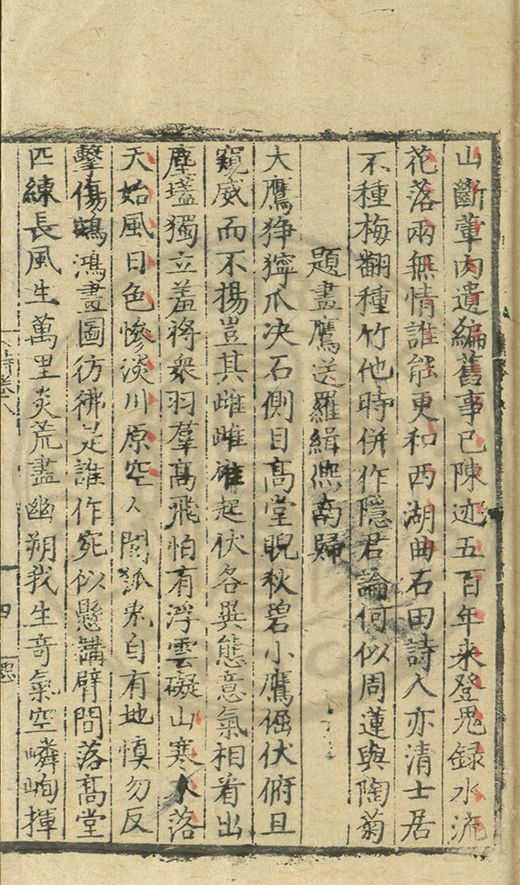 山斷葷肉遺編舊事已陳迹五百年来登鬼録水流
花落兩無情誰能更和西湖曲石田詩人亦清士居
不種梅翻種竹他時併作隱君論何似周蓮與陶菊
題畫鷹送羅緝熙南歸
大鷹猙獰爪决石側目高堂睨秋碧小鷹倔伏俯且
窺威而不揚豈其雌雌雄起伏各異態意氣相看出
塵壒獨立羞將衆羽羣高飛怕有浮雲礙山寒水落
天始風日色慘淡川原空人間狐兎自有地慎勿反
擊傷鶤鴻畫圖彷彿是誰作宛似懸鞲臂問落高堂
匹練長風生萬里炎荒盡幽朔我生竒氣空嶙峋揮
詩卷八
四